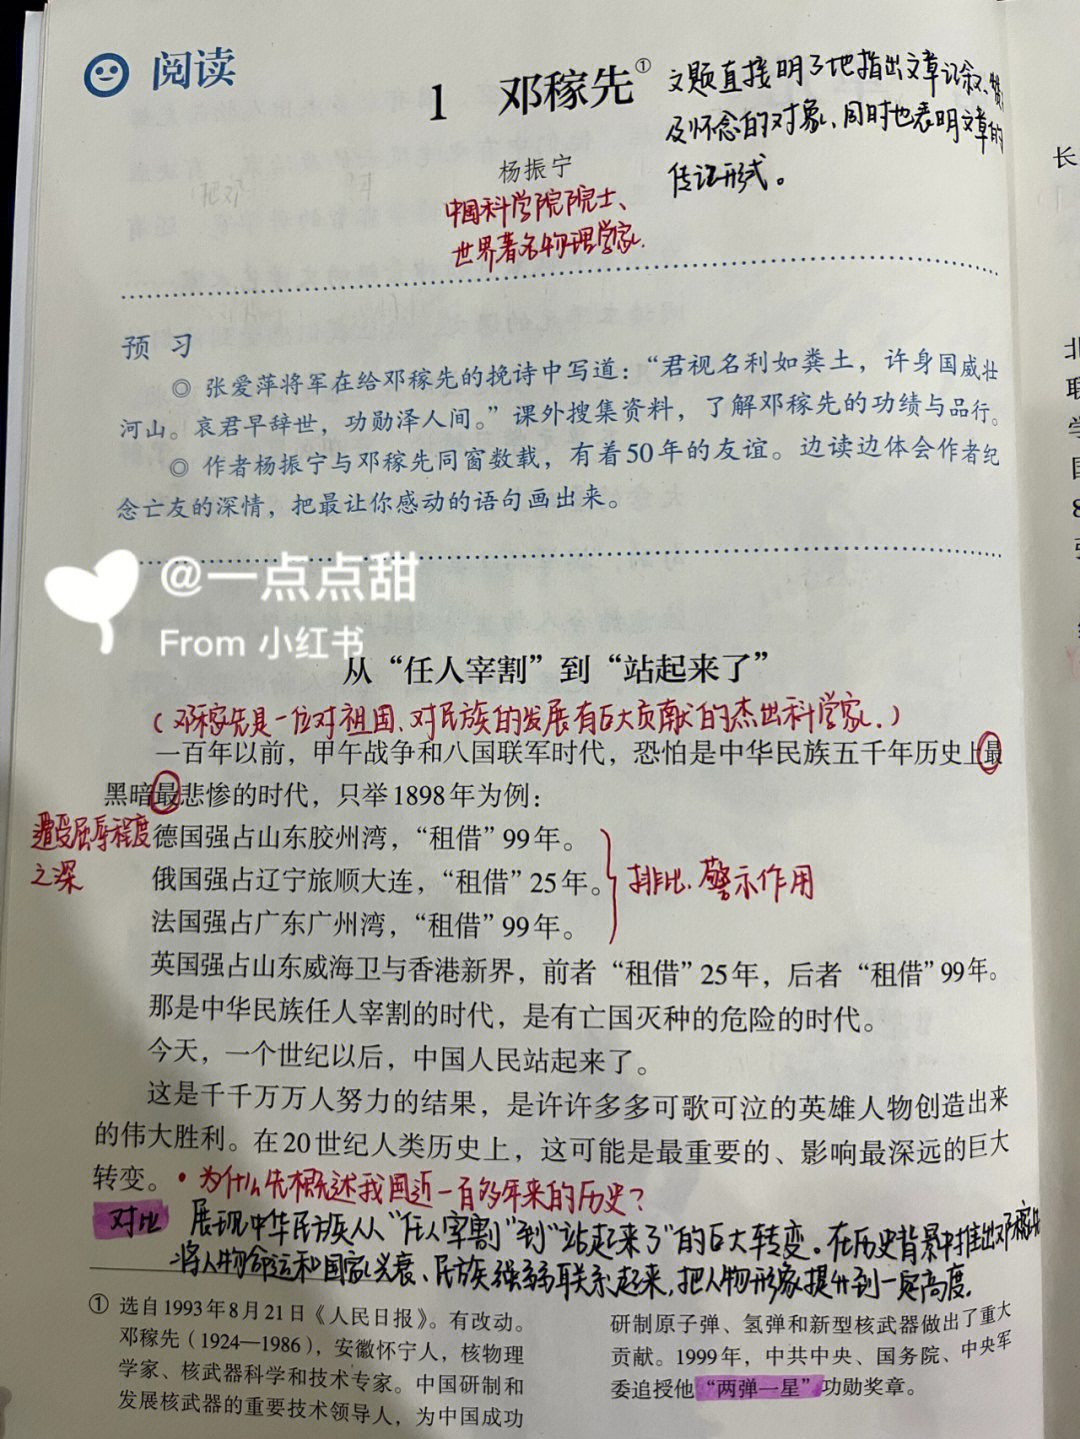 阅读
1 邓稼先①
文题直接明了地指出文章记叙、
及怀念的对象、同时也表明文章的
传记形式。
杨振宁
中国科学院院士、
世界著名物理学家.
预 习
◎ 张爱萍将军在给邓稼先的挽诗中写道：“君视名利如粪土，许身国威壮
河山。哀君早辞世，功勋泽人间。”课外搜集资料，了解邓稼先的功绩与品行。
◎ 作者杨振宁与邓稼先同窗数载，有着50年的友谊。边读边体会作者纪
念亡友的深情，把最让你感动的语句画出来。
@一点点甜
From 小红书
从“任人宰割”到“站起来了”
（邓稼先是一位对祖国、对民族的发展有巨大贡献的杰出科学家.）
一百年以前，甲午战争和八国联军时代，恐怕是中华民族五千年历史上最
黑暗最悲惨的时代，只举1898年为例：
遭受屈辱程度
之深
德国强占山东胶州湾，“租借”99年。
俄国强占辽宁旅顺大连，“租借”25年。
法国强占广东广州湾，“租借”99年。
排比、警示作用
英国强占山东威海卫与香港新界，前者“租借”25年，后者“租借”99年。
那是中华民族任人宰割的时代，是有亡国灭种的危险的时代。
今天，一个世纪以后，中国人民站起来了。
这是千千万万人努力的结果，是许许多多可歌可泣的英雄人物创造出来
的伟大胜利。在20世纪人类历史上，这可能是最重要的、影响最深远的巨大
转变。
•为什么先概述我国近一百多年来的历史？
对比 展现中华民族从“任人宰割”到“站起来了”的巨大转变。在历史背景中推出邓稼先
将人物命运和国家兴衰、民族强弱联系起来，把人物形象提升到一定高度.
① 选自1993年8月21日《人民日报》。有改动。
邓稼先（1924—1986），安徽怀宁人，核物理
学家、核武器科学和技术专家。中国研制和
发展核武器的重要技术领导人，为中国成功
研制原子弹、氢弹和新型核武器做出了重大
贡献。1999年，中共中央、国务院、中央军
委追授他“两弹一星”功勋奖章。
长
北
联
学
国
8